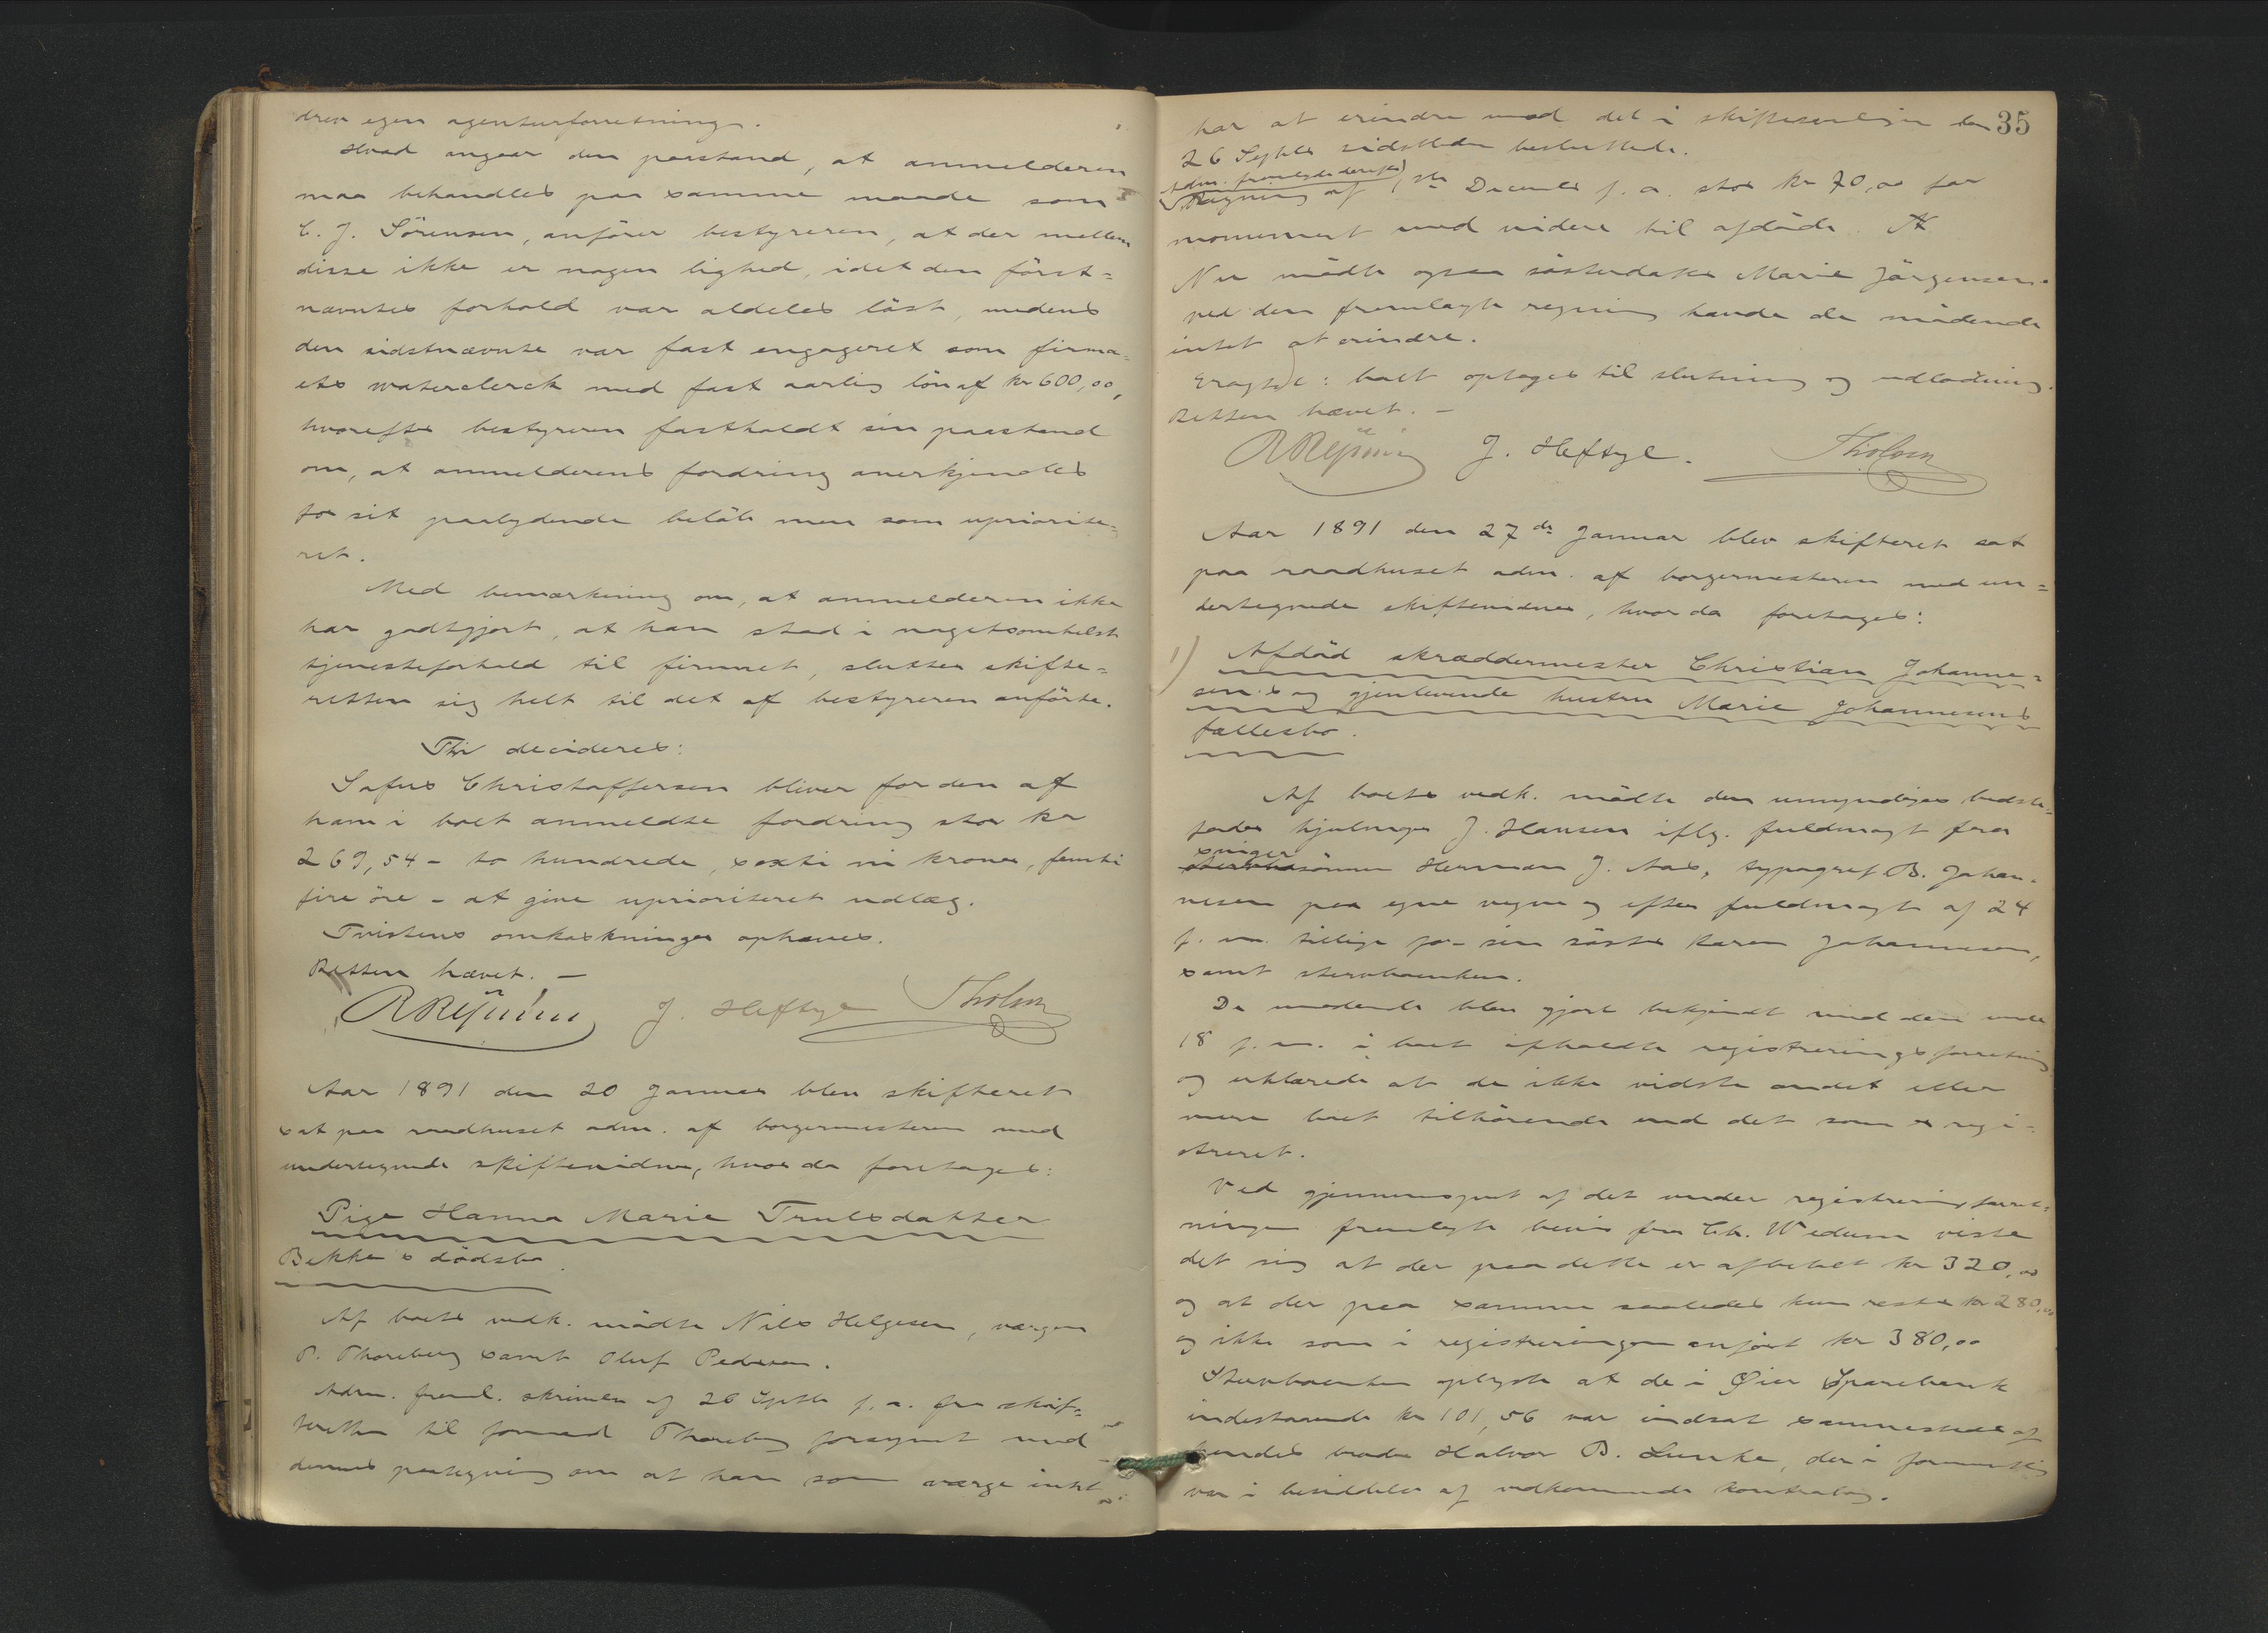 drev egen agenturforretning.
Hvad angaar den paastand, at anmelderen
maa behandles paa samme maade som
C. J. Sörensen, anförer bestyreren, at der mellem
disse ikke er nogen lighed, idet den först=
nævntes forhold var aldeles löst, medens
den sidstnævnte var fast engageret som firma=
ets waterclerck med fast aarlig lön af kr 600,00,
hvorefter bestyreren fastholdt sin paastand
om, at anmelderens fordring anerkjendes
for sit paalydende belöb men som upriorite=
ret.
Med bemærkning om, at anmelderen ikke
har godtgjort, at han stod i nogetsomhelst
tjenesteforhold til firmaet, slutter skifte=
retten sig helt til det af bestyreren anförte.
Thi decideres:
Sofus Christoffersen bliver for den af
ham i boet anmeldte fordring stor kr
269,54 - to hundrede, sexti ni kroner, femti
fire öre - at give uprioriteret udlæg.
Tvistens omkostninger ophæves.
Retten hævet. —
J. Heftye Tholsen
Aar 1891 den 20 Januar blev skifteret
sat paa raadhuset adm. af borgermesteren med
undertegnede skiftevidner, hvor da foretages:
Pige Hanna Marie Trulsdatter
Bekke's dödsbo.
Af boets vedk. mödte Nils Helgesen, værgen
P. Thoreberg samt Oluf Pedersen.
Adm. freml. skrivelse af 26 Septbr f. a. fra skif=
teretten til formand Thoreberg forsynet med
dennes paategning om at han som værge intet
35
har at erindre mod det i skiftesamlingen den
26 Septbr sidstleden besluttede.
Adm. fremlagde derefter
Regning af 1ste December f. a. stor kr 70,00 for
monument med videre til afdöde.
Nu mödte ogsaa sösterdatter Marie Jörgensen.
ved den fremlagte regning havde de mödende
intet at erindre.
Eragtet: boet optages til slutning og udlodning.
Retten hævet. —
J. Heftye. Tholsen
Aar 1891 den 27de Januar blev skifteret sat
paa raadhuset adm. af borgermesteren med un=
dertegnede skiftevidner, hvor da foretages:
1) Afdöd skræddermester Christian Johanne=
sen's og gjenlevende hustru Marie Johannesens
fællesbo.
Af boets vedk. mödte den umyndiges bedste=
fader hjulmager J. Hansen iflg. fuldmagt fra
sviger
sönnen Herman J. Aas, typograf B. Johan=
nesen paa egne vegne og efter fuldmagt af 24
f. m. tillige for sin söster Karen Johannesen,
samt stervboenken.
De mödende blev gjort bekjendt med den under
18 f. m. i boet afholdte registreringsforretning
og erklærede at de ikke vidste andet eller
mere boet tilhörende end det som er regi=
streret.
Ved gjennemsyn af det under registreringsforret=
ningen fremlagte bevis fra Chr. Wedum viste
det sig at der paa dette er afbetalt kr 320,00
og at der paa samme saaledes kun rester kr 280,00
og ikke som i registreringen anfört kr 380,00
Stervboenken oplyste at de i Öier Sparebank
indestaaende kr 101,56 var indsat sammesteds af
hendes broder Halvor B. Lunke, der i
var i besiddelse af vedkommende kontrabog.